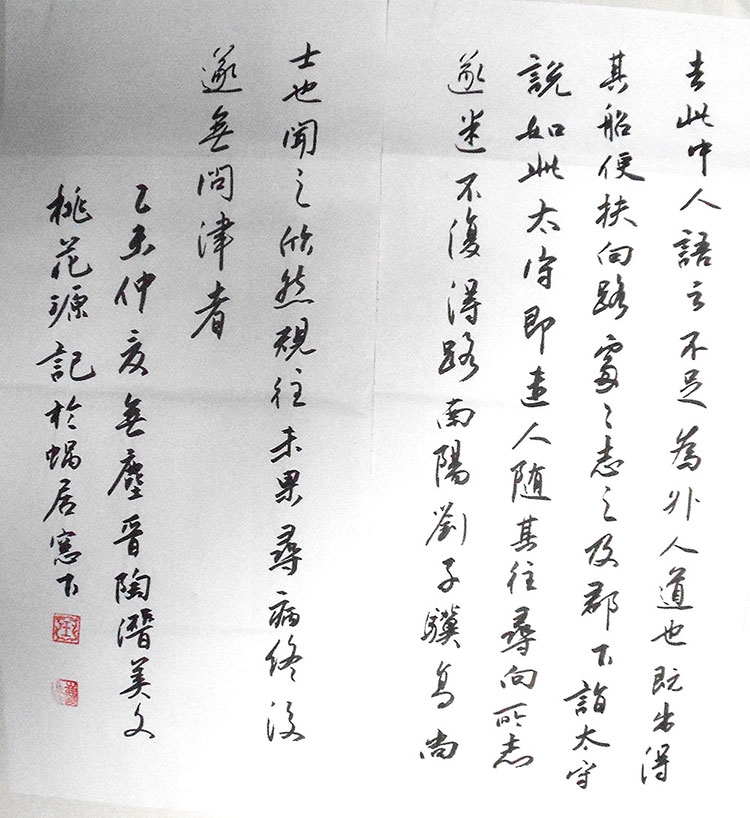 去此中人語云不足為外人道也既出得
其船便扶向路處々志之及郡下詣太守
說如此太守即遣人随其往尋向所志
遂迷不復得路南陽劉子驥高尚
士也聞之欣然規往未果尋病終後
遂無問津者
乙未仲夏無塵晉陶潛美文
桃花源記於蝸居窓下